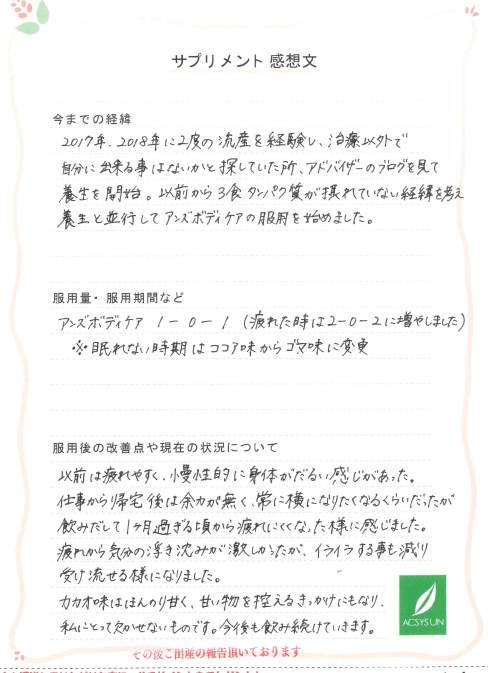 サプリメント 感想文
今までの経緯
2017年、2018年に2度の流産を経験し、治療以外で
自分に出来る事はないかと探していた所、アドバイザーのブログを見て
養生を開始。以前から3食タンパク質が摂れていない経緯を考え
養生と並行してアンズボディケアの服用を始めました。
服用量・服用期間など
アンズボディケア 1-0-1 (疲れた時は2-0-2に増やしました)
※眠れない時期はココア味からゴマ味に変更
服用後の改善点や現在の状況について
以前は疲れやすく、慢性的に身体がだるい感じがあった。
仕事から帰宅後は余力が無く、常に横になりたくなるくらいだったが
飲みだして1ヶ月過ぎる頃から疲れにくくなった様に感じました。
疲れから気分の浮き沈みが激しかったが、イライラする事も減り
受け流せる様になりました。
カカオ味はほんのり甘く、甘い物を控えるきっかけにもなり、
私にとって欠かせないものです。今後も飲み続けていきます。
ACSYSUN
その後ご出産の報告頂いております